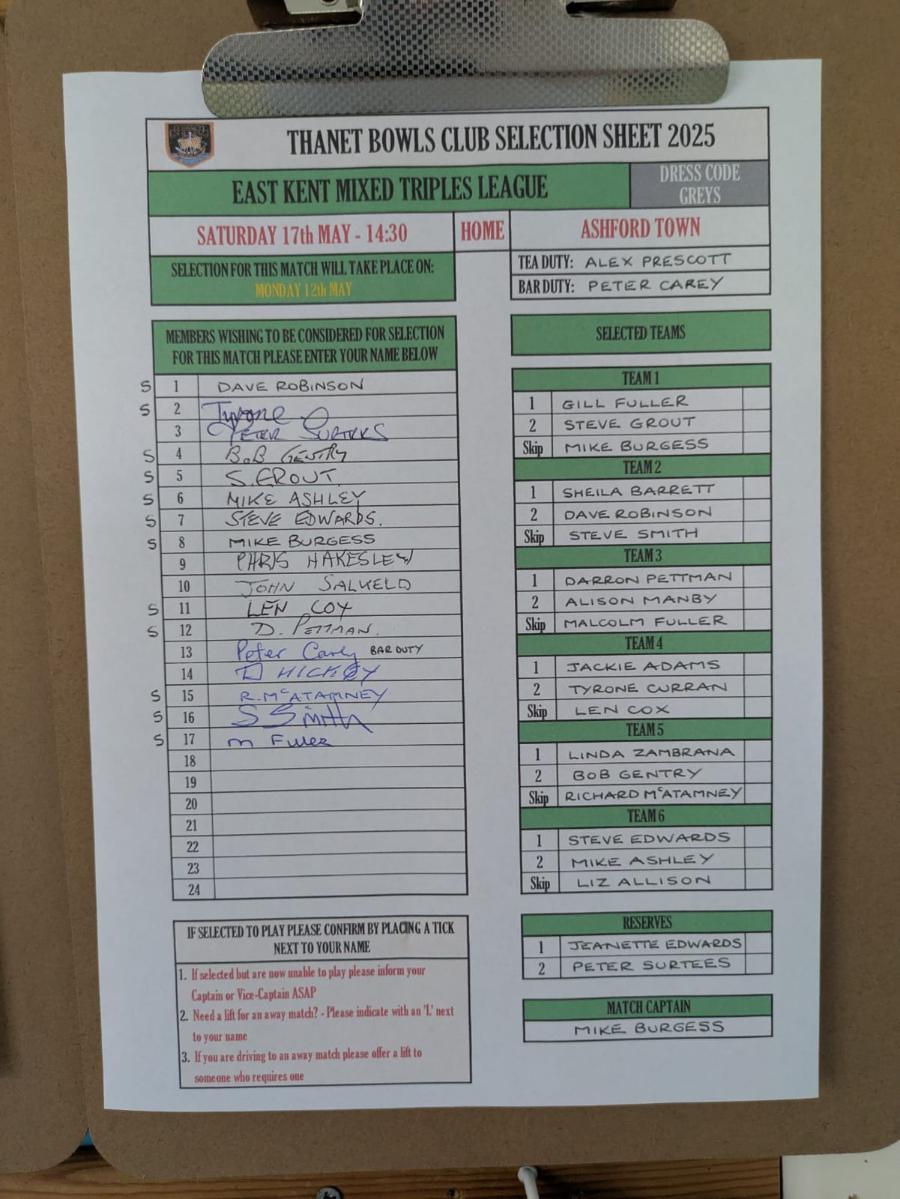 THANET BOWLS CLUB SELECTION SHEET 2025
EAST KENT MIXED TRIPLES LEAGUE
DRESS CODE
GREYS
SATURDAY 17th MAY - 14:30
HOME
ASHFORD TOWN
SELECTION FOR THIS MATCH WILL TAKE PLACE ON:
MONDAY 12th MAY
TEA DUTY: ALEX PRESCOTT
BAR DUTY: PETER CAREY
MEMBERS WISHING TO BE CONSIDERED FOR SELECTION
FOR THIS MATCH PLEASE ENTER YOUR NAME BELOW
S 1 DAVE ROBINSON
S 2 Tyrone
3 PETER SURTEES
S 4 BOB GENTRY
S 5 S. GROUT.
S 6 MIKE ASHLEY
S 7 STEVE EDWARDS.
S 8 MIKE BURGESS
9 CHRIS HAKESLEY
10 JOHN SALKELD
S 11 LEN COX
S 12 D. PETTMAN.
13 Peter Carey BAR DUTY
14 D HICKEY
S 15 R. McATAMNEY
S 16 S Smith
S 17 m Fuller
18
19
20
21
22
23
24
SELECTED TEAMS
TEAM 1
1 GILL FULLER
2 STEVE GROUT
Skip MIKE BURGESS
TEAM 2
1 SHEILA BARRETT
2 DAVE ROBINSON
Skip STEVE SMITH
TEAM 3
1 DARRON PETTMAN
2 ALISON MANBY
Skip MALCOLM FULLER
TEAM 4
1 JACKIE ADAMS
2 TYRONE CURRAN
Skip LEN COX
TEAM 5
1 LINDA ZAMBRANA
2 BOB GENTRY
Skip RICHARD McATAMNEY
TEAM 6
1 STEVE EDWARDS
2 MIKE ASHLEY
Skip LIZ ALLISON
RESERVES
1 JEANETTE EDWARDS
2 PETER SURTEES
MATCH CAPTAIN
MIKE BURGESS
IF SELECTED TO PLAY PLEASE CONFIRM BY PLACING A TICK
NEXT TO YOUR NAME
1. If selected but are now unable to play please inform your
Captain or Vice-Captain ASAP
2. Need a lift for an away match? - Please indicate with an 'L' next
to your name
3. If you are driving to an away match please offer a lift to
someone who requires one